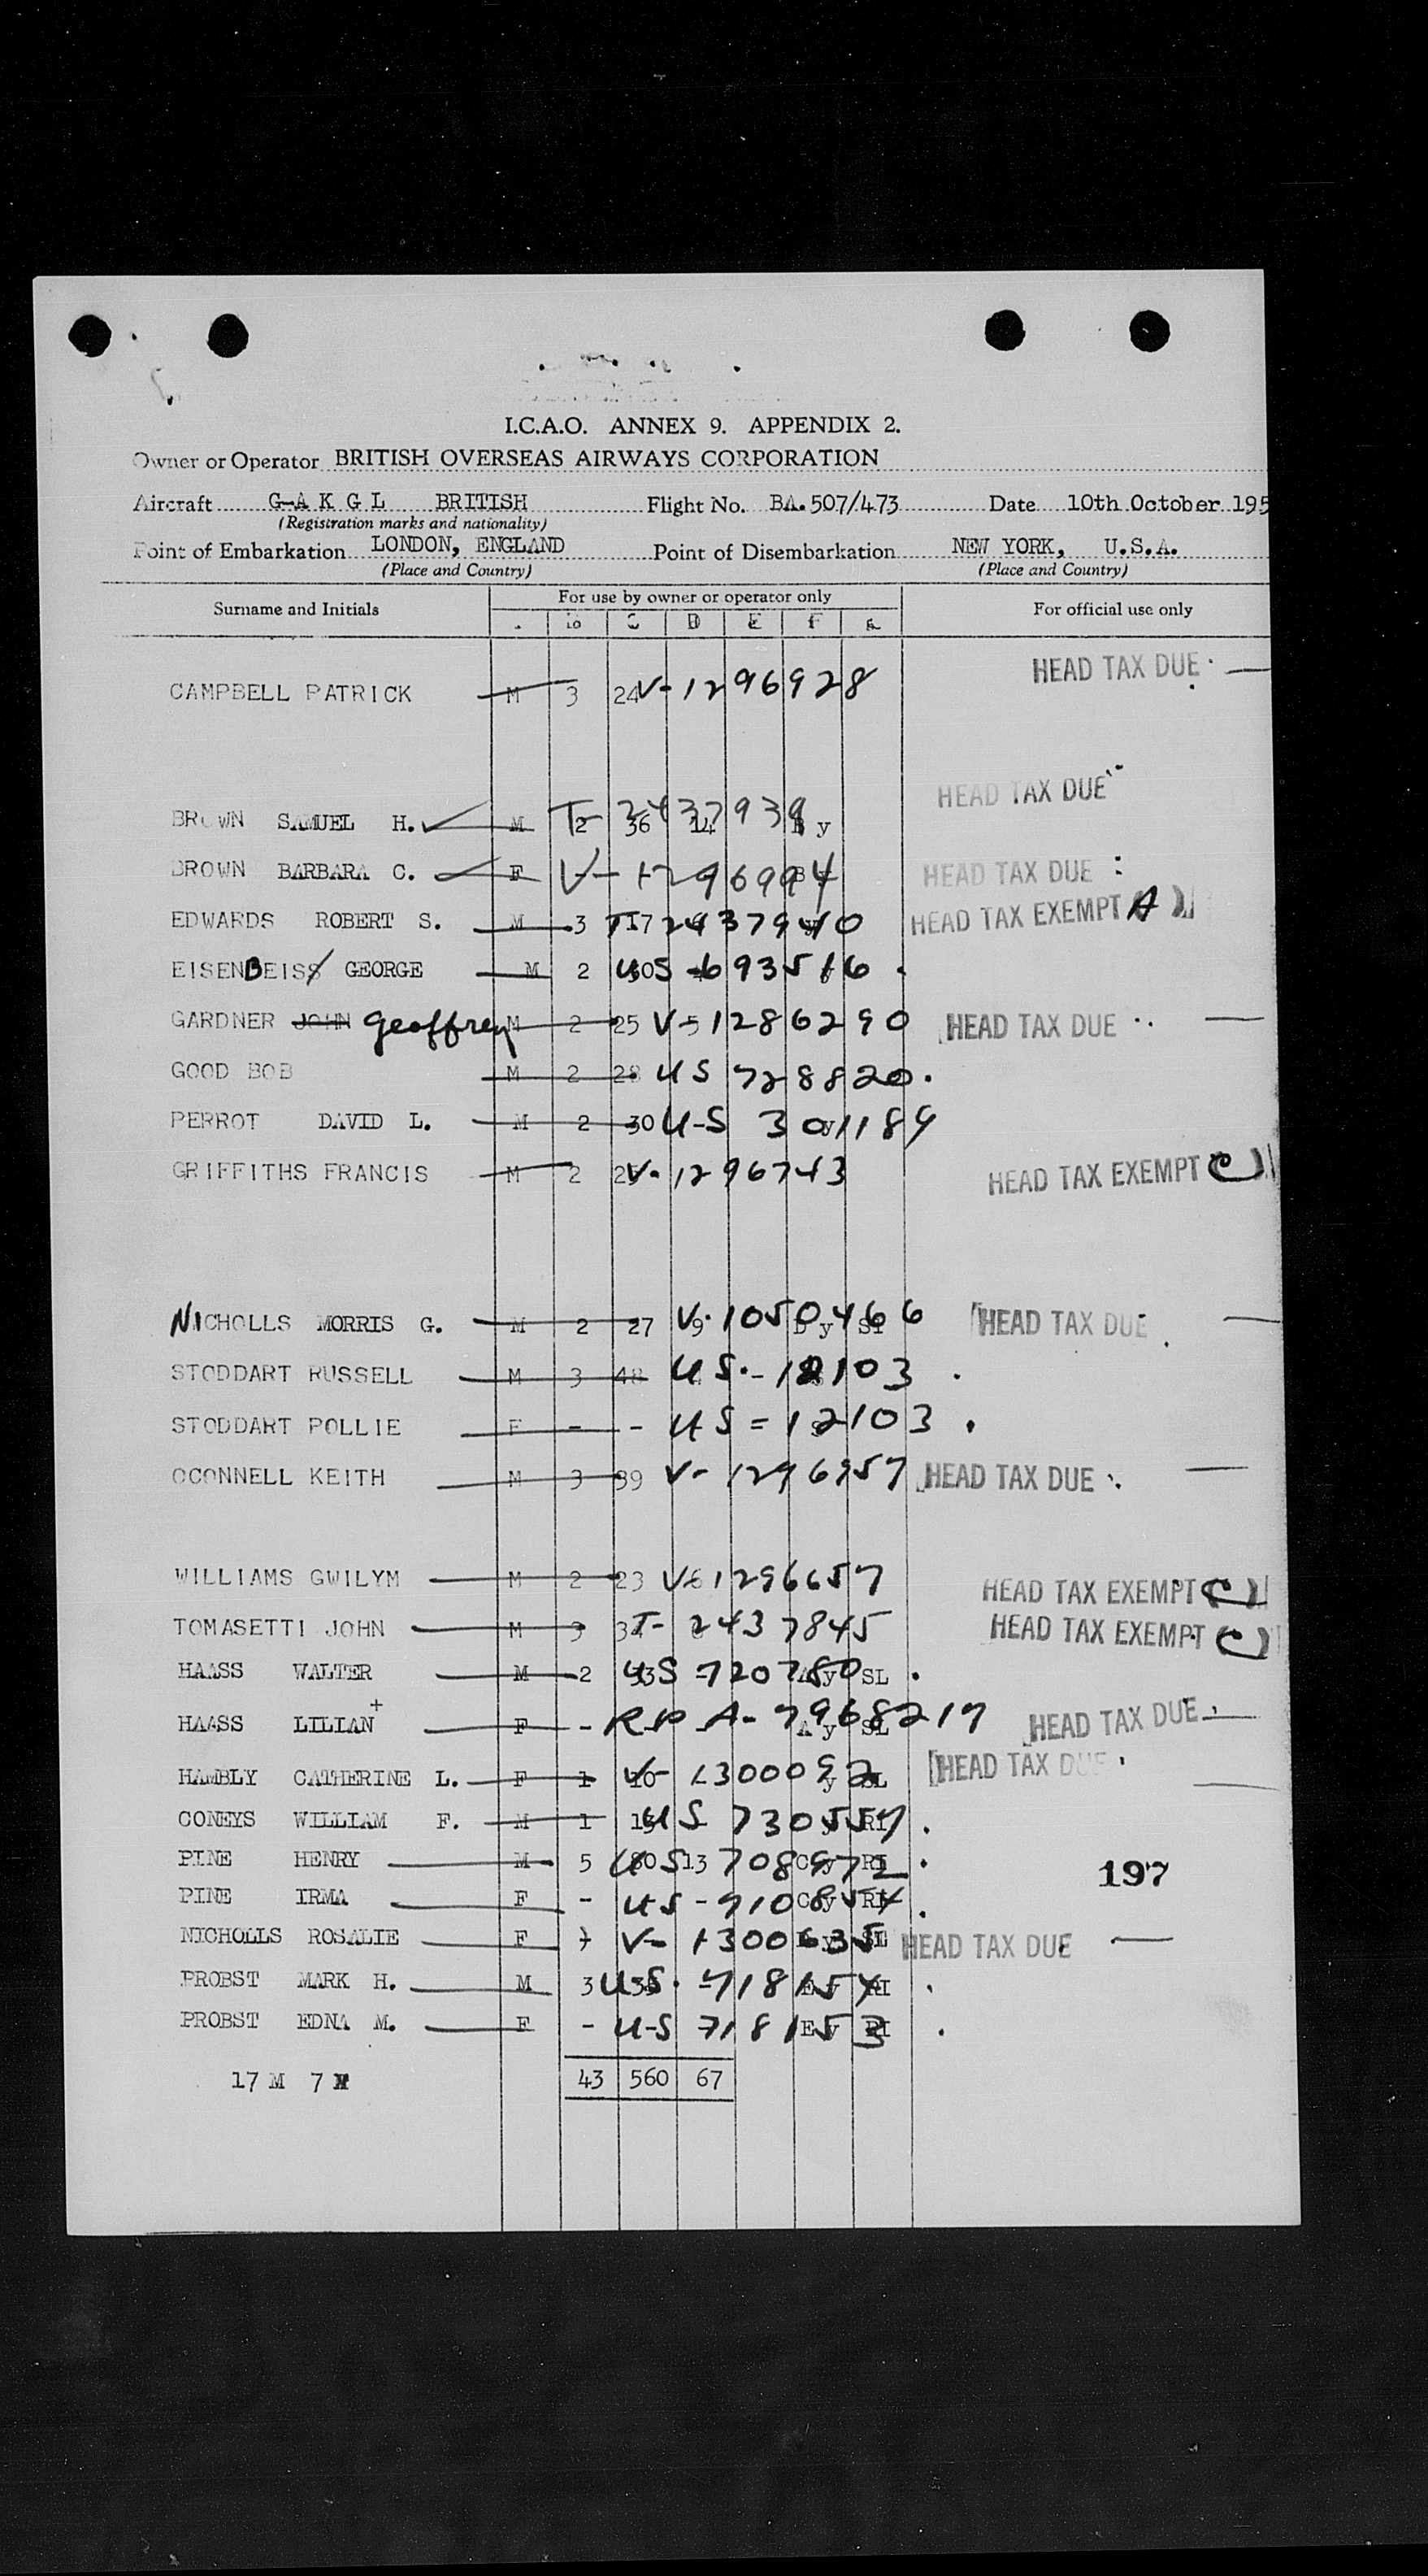 I.C.A.O. ANNEX 9. APPENDIX 2.
Owner or Operator BRITISH OVERSEAS AIRWAYS CORPORATION
Aircraft G-A K G L BRITISH Flight No. BA.507/473 Date 10th October 195
(Registration marks and nationality)
Point of Embarkation LONDON, ENGLAND Point of Disembarkation NEW YORK, U.S.A.
(Place and Country) (Place and Country)
Surname and Initials For use by owner or operator only For official use only
C D E F
CAMPBELL PATRICK M 3 24 V-1296928 HEAD TAX DUE
HEAD TAX DUE
BROWN SAMUEL H. M 2 36 14 T-2437939 y
BROWN BARBARA C. F V-1296994 HEAD TAX DUE
EDWARDS ROBERT S. M 3 17 T-2437940 HEAD TAX EXEMPT A
EISENBEISS GEORGE M 2 US-693516
GARDNER JOHN Geoffrey M 2 25 V-1286290 HEAD TAX DUE
GOOD BOB M 2 28 US 728820.
PERROT DAVID L. M 2 30 U-S 301189
GRIFFITHS FRANCIS M 2 V-1296743 HEAD TAX EXEMPT C
NICHOLLS MORRIS G. M 2 27 9 V-1050466 y HEAD TAX DUE
STODDART RUSSELL M 3 48 US.-12103
STODDART POLLIE F - - US=12103.
OCONNELL KEITH M 3 39 V-1296957 HEAD TAX DUE
WILLIAMS GWILYM M 2 23 V-1296657 HEAD TAX EXEMPT C
TOMASETTI JOHN M 3 T-2437845 HEAD TAX EXEMPT C
HAASS WALTER M 2 US-720780 SL
HAASS LILIAN + F - RP A-7968217 A y SL HEAD TAX DUE
HAMBLY CATHERINE L. F 1 10 V-1300092 y SL HEAD TAX DUE
CONEYS WILLIAM F. M 1 US 730557 RI
PINE HENRY M 5 80 13 US 708972 C y RI 197
PINE IRMA F - US-910854 C y RI
NICHOLLS ROSALIE F V-1300635 SL HEAD TAX DUE
PROBST MARK H. M 3 U.S. 718154 RI
PROBST EDNA M. F - U-S 718153 E y RI
17 M 7 43 560 67